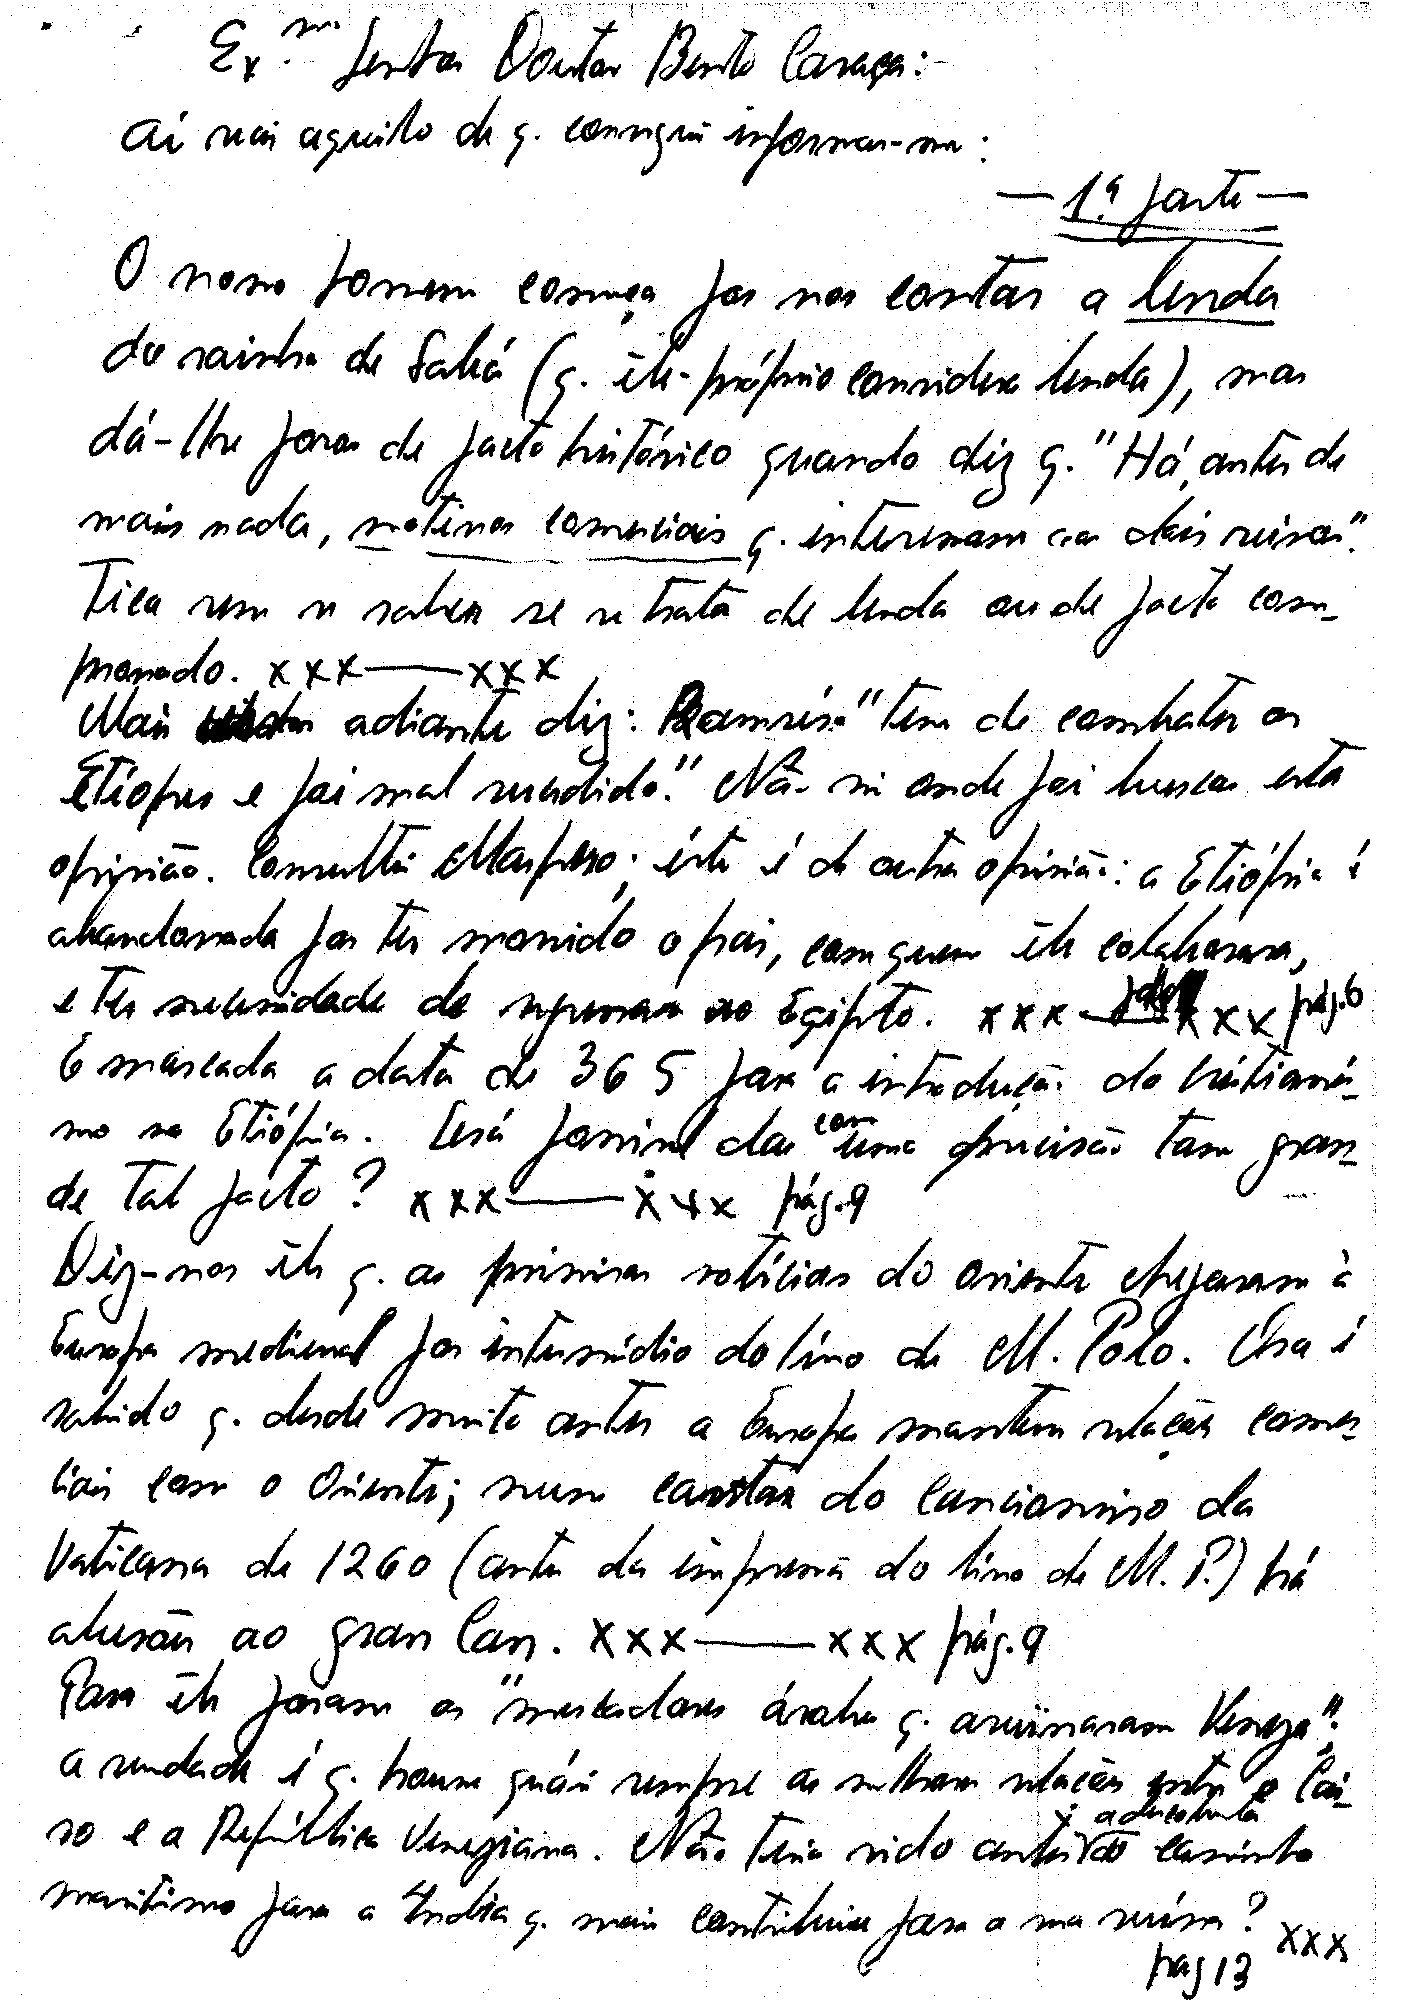 Ex.mo Senhor Doutor Bento Caraça:-
Aí vai aquilo de q. consegui informar-me:
— 1.ª parte —
O nosso homem começa por nos contar a lenda
da rainha de Sabá (q. êle-próprio considera lenda), mas
dá-lhe foros de facto histórico quando diz q. "Há, antes de
mais nada, motivos comerciais q. interessam aos dois reinos".
Fica sem se saber se se trata de lenda ou de facto com-
provado. xxx——xxx
Mais adiante diz: Ramsés "tem de combater os
Etíopes e foi mal sucedido." Não sei onde foi buscar esta
opinião. Consultei Maspero; êste é de outra opinião: a Etiópia é
abandonada por ter morrido o pai, com quem êle colaborava,
e ter necessidade de regressar ao Egipto. xxx —— xxx pág. 6
É marcada a data de 365 para a introdução do Cristianis-
mo na Etiópia. Será possível dar com uma precisão tam gran-
de tal facto? xxx——xxx pág. 9
Diz-nos êle q. as primeiras notícias do oriente chegaram à
Europa medieval por intermédio do livro de M. Polo. Ora é
sabido q. desde muito antes a Europa mantém relações comer-
ciais com o Oriente; num cantar do Cancioneiro da
Vaticana de 1260 (antes da impressão do livro de M. P.) há
alusão ao gran Can. xxx——xxx pág. 9
Para êle foram os "mercadores árabes q. arruinaram Veneza";
a verdade é q. houve quási sempre as melhores relações entre o Cai-
ro e a República Veneziana. Não teria sido antes a descoberta do caminho
marítimo para a Índia q. mais contribuiu para a sua ruína? xxx
pág 13